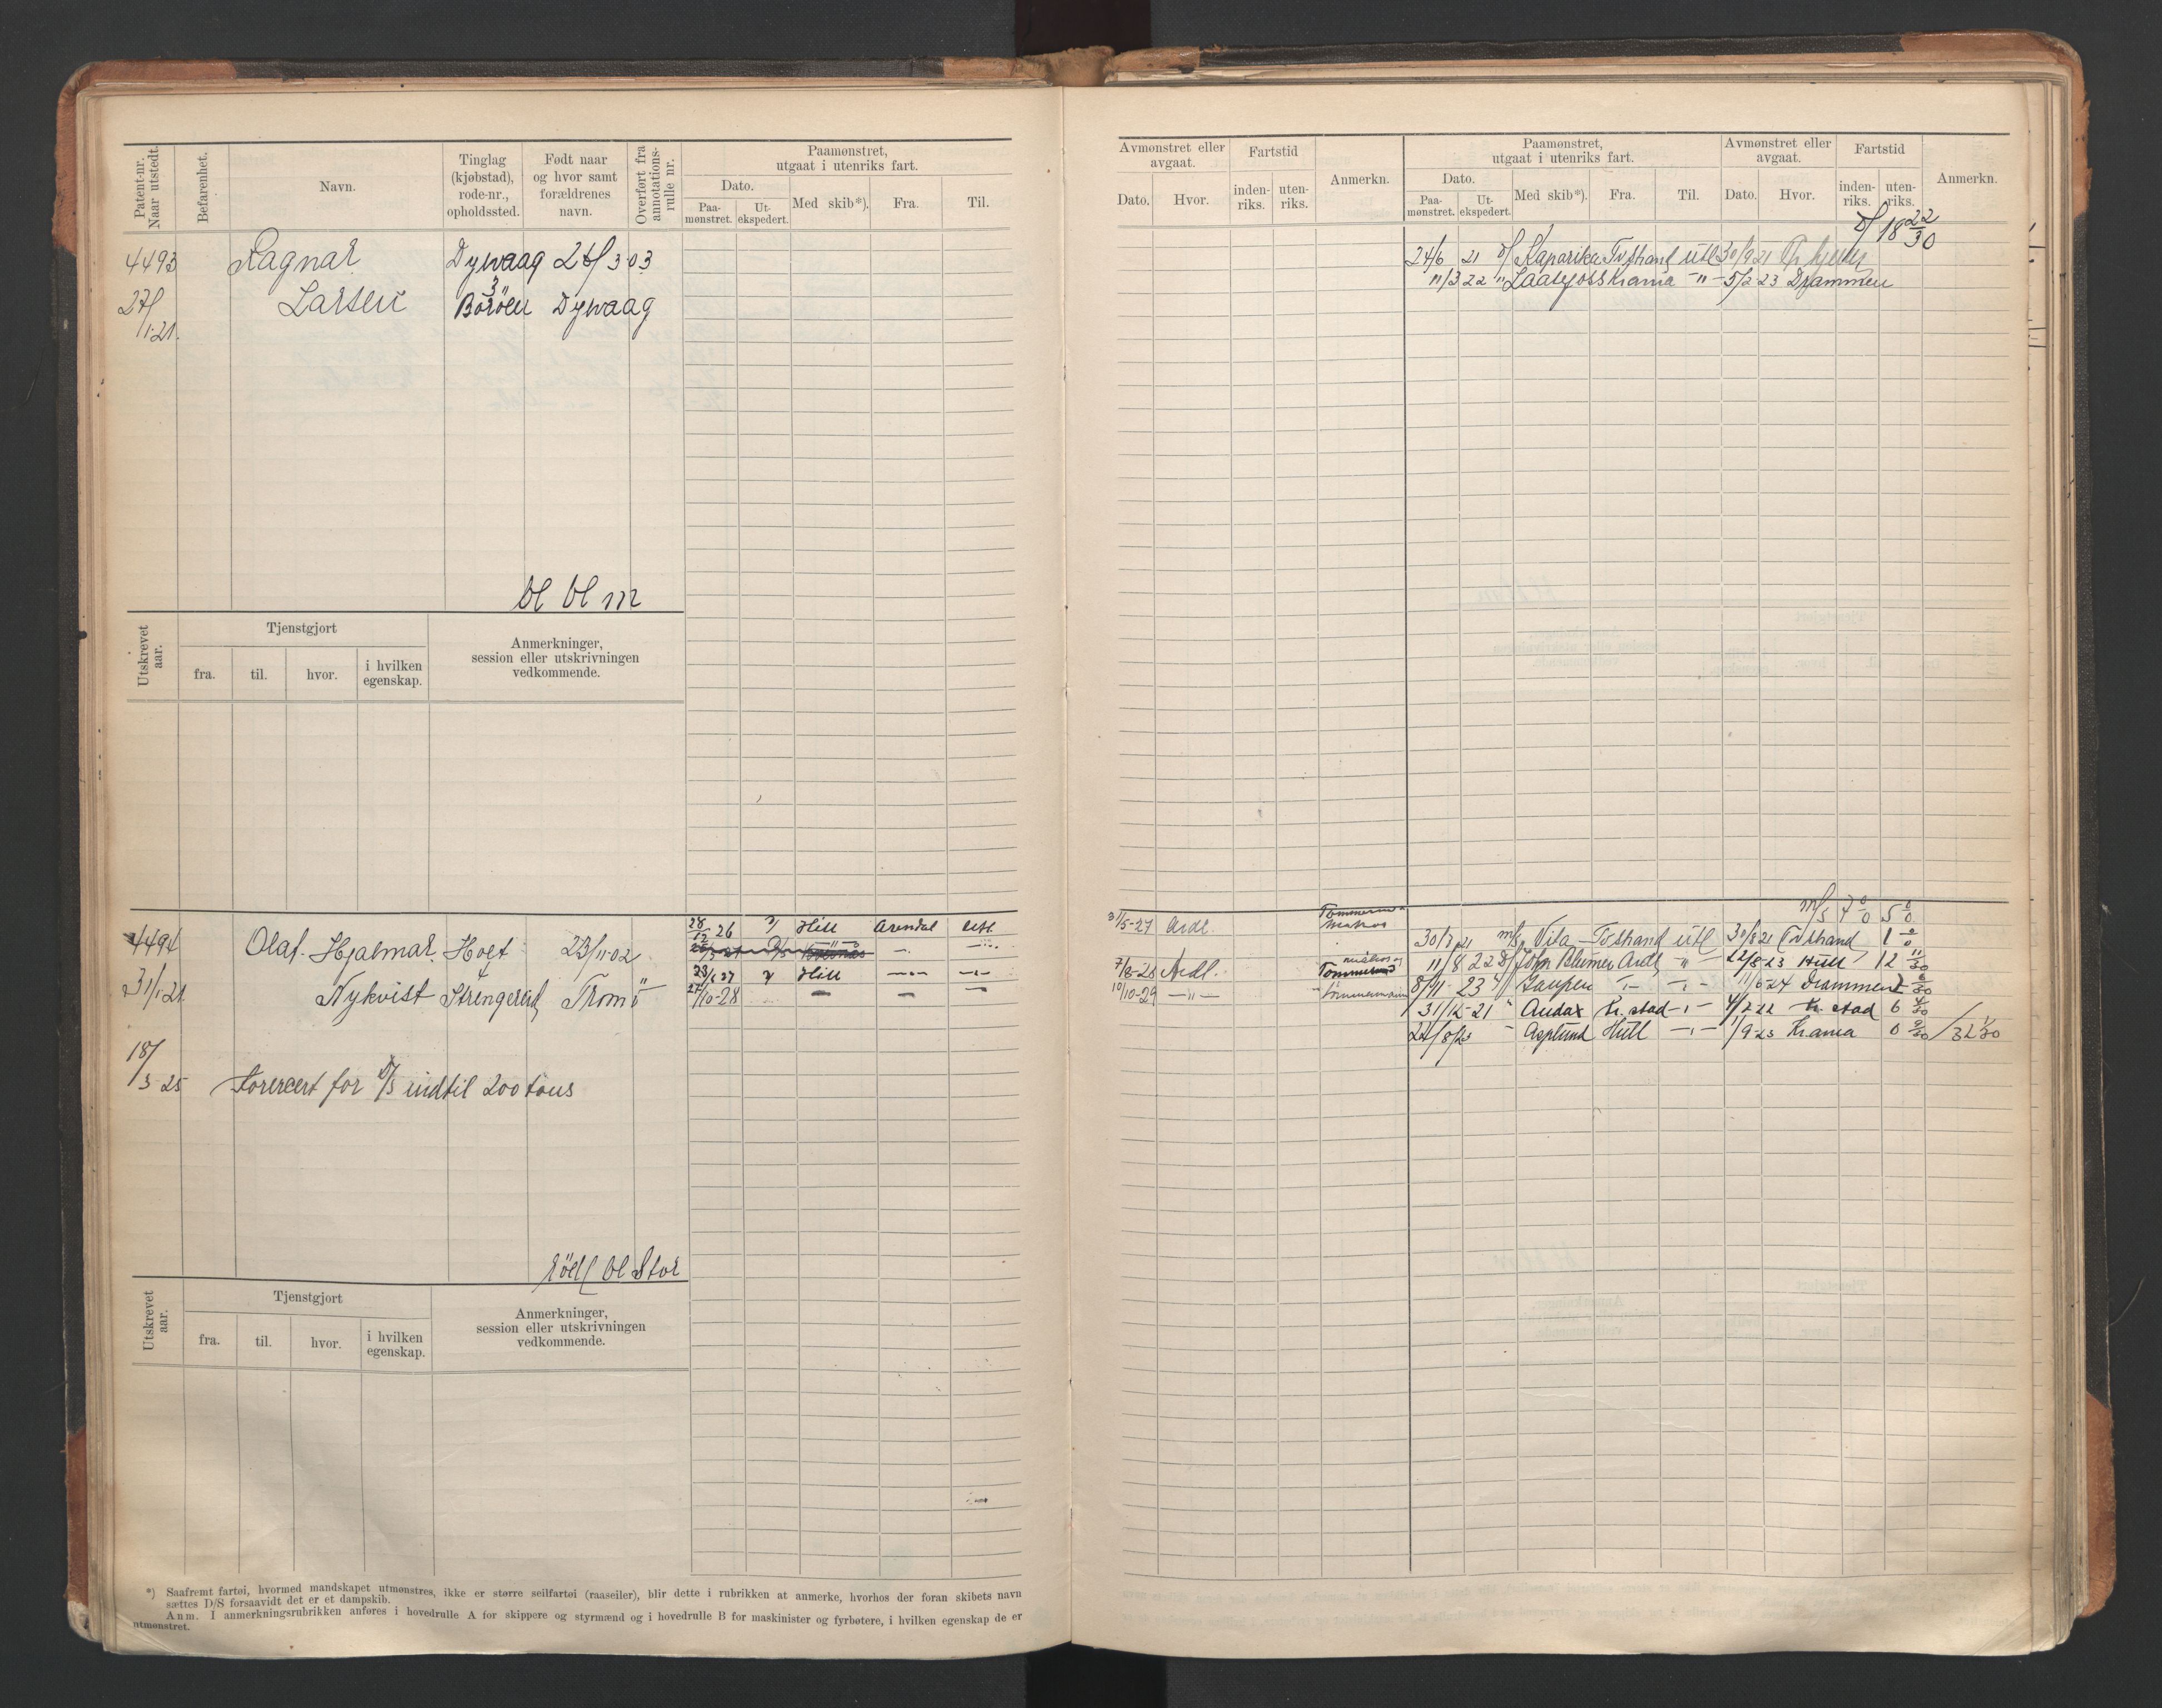 Patent-nr. Naar utstedt.
Befarenhet.
Navn.
Tinglag (kjøbstad), rode-nr., opholdssted.
Født naar og hvor samt forældrenes navn.
Overført fra annotations-rulle nr.
Paamønstret, utgaat i utenriks fart.
Dato.
Paa-mønstret.
Ut-ekspedert.
Med skib*).
Fra.
Til.
4493
Ragnar
Dywaag 26/3 03
27/1.21.
Larsen
3"
Borøen Dywaag
bl bl m
Utskrevet aar.
Tjenstgjort
fra.
til.
hvor.
i hvilken egenskap.
Anmerkninger, session eller utskrivningen vedkommende.
4494
Olaf Hjalmar
Holt
23/11-02
31/1-21
Nykvist
4
Strengereid
Tromö
28/12 26 Hill Arendal utl.
23/1 27 Hill
27/10-28
18/3-25
for D/S indtil 200 tons
röd bl Stor
Utskrevet aar.
Tjenstgjort
fra.
til.
hvor.
i hvilken egenskap.
Anmerkninger, session eller utskrivningen vedkommende.
*) Saafremt fartøi, hvormed mandskapet utmønstres, ikke er større seilfartøi (raaseiler), blir dette i rubrikken at anmerke, hvorhos der foran skibets navn
sættes D/S forsaavidt det er et dampskib.
Anm. I anmerkningsrubrikken anføres i hovedrulle A for skippere og styrmænd og i hovedrulle B for maskinister og fyrbøtere, i hvilken egenskap de er
utmønstret.
Avmønstret eller avgaat.
Dato.
Hvor.
Fartstid
inden-riks.
uten-riks.
Anmerkn.
Paamønstret, utgaat i utenriks fart.
Dato.
Paa-mønstret.
Ut-ekspedert.
Med skib*).
Fra.
Til.
Avmønstret eller avgaat.
Dato.
Hvor.
Fartstid
inden-riks.
uten-riks.
Anmerkn.
D/ 18 22/30
24/6 21 D/ Kaparika Tvstrand utl 30/9 21
11/3 22 " Krania -"- 5/2-23 Drammen
m/s 7 0/0 5 0/0
31/5-27 Ardl. Tømmerm matros
30/7 21 m/s Vita Tvstrand utl 30/8 21 Tvstrand 1 0/0
7/8-28 Ardl. matros og Tømmermand
11/8 22 D/ John Blumer Ardl " 22/8-23 Hull 12 11/30
10/10-29 -"- tømmermann
8/11-23 11/6-24 Drammen
31/12-21 " Audax Kr. stad -"- 4/7-22 Kr. stad 6 4/30
24/8/23 " Asplund Hull -"- 1/9-23 Krania 0 9/30 / 32 1/30